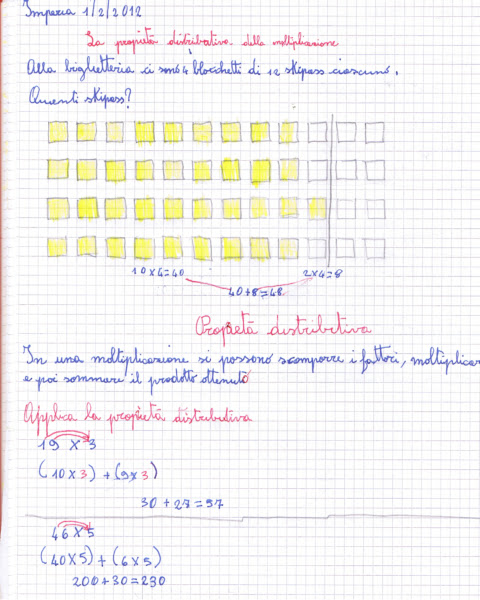 Imperia 1/2/2012
La proprietà distributiva della moltiplicazione
Alla biglietteria ci sono 4 blocchetti di 12 skipass ciascuno.
Quanti skipass?
10x4=40 2x4=8
40+8=48
Proprietà distributiva
In una moltiplicazione si possono scomporre i fattori, moltiplicar
e poi sommare il prodotto ottenuto
Applica la proprietà distributiva
19 x 3
(10x3) + (9x3)
30 + 27 = 57
46 x 5
(40x5) + (6x5)
200+30=230